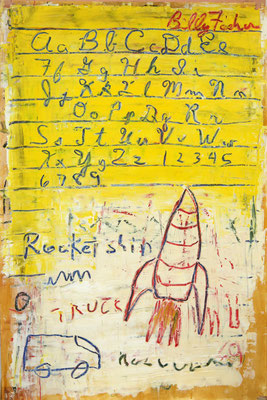 Billy
Aa Bb Cc Dd Ee
Ff Gg Hh Ii
Jj Kk Ll Mm Nn
Oo Pp Qq Rr
Ss Tt Uu Vv Ww
Xx Yy Zz 1 2 3 4 5
6 7 8 9
Rocketship
TRUCK